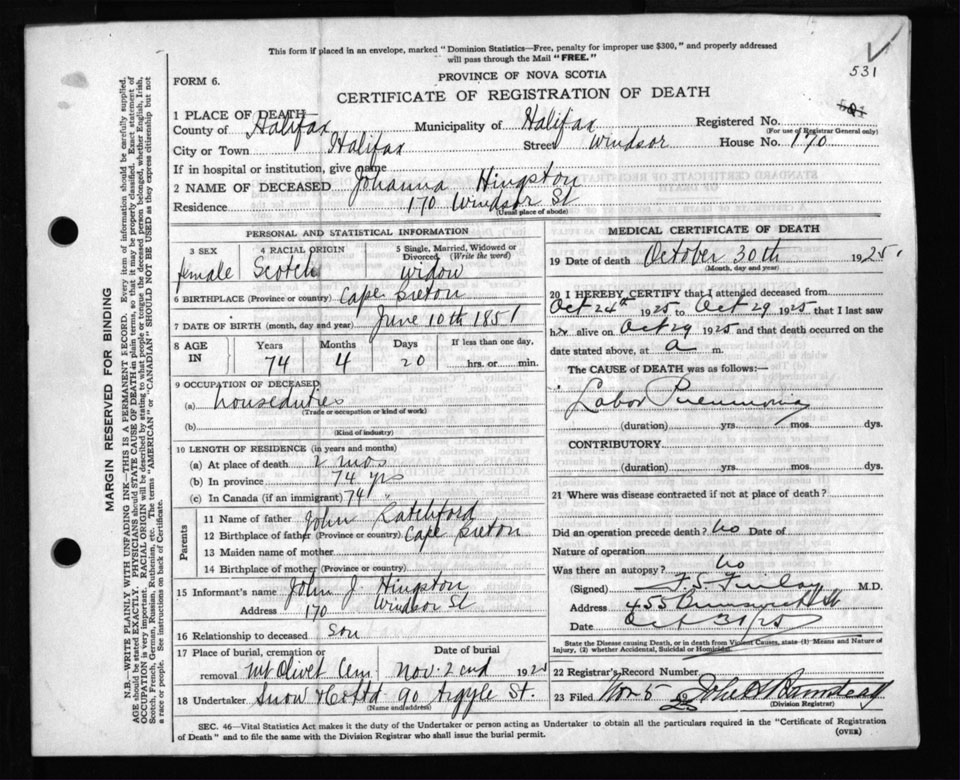 This form if placed in an envelope, marked "Dominion Statistics—Free, penalty for improper use $300," and properly addressed
will pass through the Mail "FREE."
531
FORM 6.
PROVINCE OF NOVA SCOTIA
CERTIFICATE OF REGISTRATION OF DEATH
1 PLACE OF DEATH
County of Halifax Municipality of Halifax Registered No.
(For use of Registrar General only)
City or Town Halifax Street Windsor House No. 170
If in hospital or institution, give name
2 NAME OF DECEASED Johanna Hingston
Residence 170 Windsor St
(Usual place of abode)
PERSONAL AND STATISTICAL INFORMATION
3 SEX 4 RACIAL ORIGIN 5 Single, Married, Widowed or
Divorced (Write the word)
female Scotch widow
6 BIRTHPLACE (Province or country) Cape Breton
7 DATE OF BIRTH (month, day and year) June 10th 1851
8 AGE IN Years Months Days If less than one day,
74 4 20 hrs. or min.
9 OCCUPATION OF DECEASED
(a) houseduties
(Trade or occupation or kind of work)
(b)
(Kind of industry)
10 LENGTH OF RESIDENCE (in years and months)
(a) At place of death 2 mos
(b) In province 74 yrs
(c) In Canada (if an immigrant) 74 "
Parents
11 Name of father John Ratchford
12 Birthplace of father (Province or country) Cape Breton
13 Maiden name of mother
14 Birthplace of mother (Province or country)
15 Informant's name John J Hingston
Address 170 Windsor St
16 Relationship to deceased son
17 Place of burial, cremation or Date of burial
removal Mt Olivet Cem Nov. 2nd 1925
18 Undertaker Snow & Co Ltd 90 Argyle St.
(Name and address)
MEDICAL CERTIFICATE OF DEATH
19 Date of death October 30th 1925.
(Month, day and year)
20 I HEREBY CERTIFY that I attended deceased from
Oct 24th 1925 to Oct 29 1925 that I last saw
her alive on Oct 29 1925 and that death occurred on the
date stated above, at a m.
The CAUSE of DEATH was as follows:—
Lobar Pneumonia
(duration) yrs. mos. dys.
CONTRIBUTORY
(duration) yrs. mos. dys.
21 Where was disease contracted if not at place of death?
Did an operation precede death? No Date of
Nature of operation
Was there an autopsy? No
(Signed) F. S. Finlay M.D.
Address 455 Brunswick St
Date Oct 31/25
State the Disease causing Death, or in death from Violent Causes, state (1) Means and Nature of
Injury, (2) whether Accidental, Suicidal or Homicidal.
22 Registrar's Record Number
23 Filed Nov 5 25
(Division Registrar)
SEC. 46—Vital Statistics Act makes it the duty of the Undertaker or person acting as Undertaker to obtain all the particulars required in the "Certificate of Registration
of Death" and to file the same with the Division Registrar who shall issue the burial permit.
(OVER)
MARGIN RESERVED FOR BINDING
N.B.—WRITE PLAINLY WITH UNFADING INK—THIS IS A PERMANENT RECORD. Every item of information should be carefully supplied.
AGE should be stated EXACTLY. PHYSICIANS should STATE CAUSE OF DEATH in plain terms, so that it may be properly classified. Exact statement of
OCCUPATION is very important. RACIAL ORIGIN will be described by stating to what people or tongue the deceased person belonged, whether English, Irish,
Scotch, French, German, Russian, Ruthenian, etc. The terms "AMERICAN" or "CANADIAN" SHOULD NOT BE USED as they express citizenship but not
a race or people. See instructions on back of Certificate.